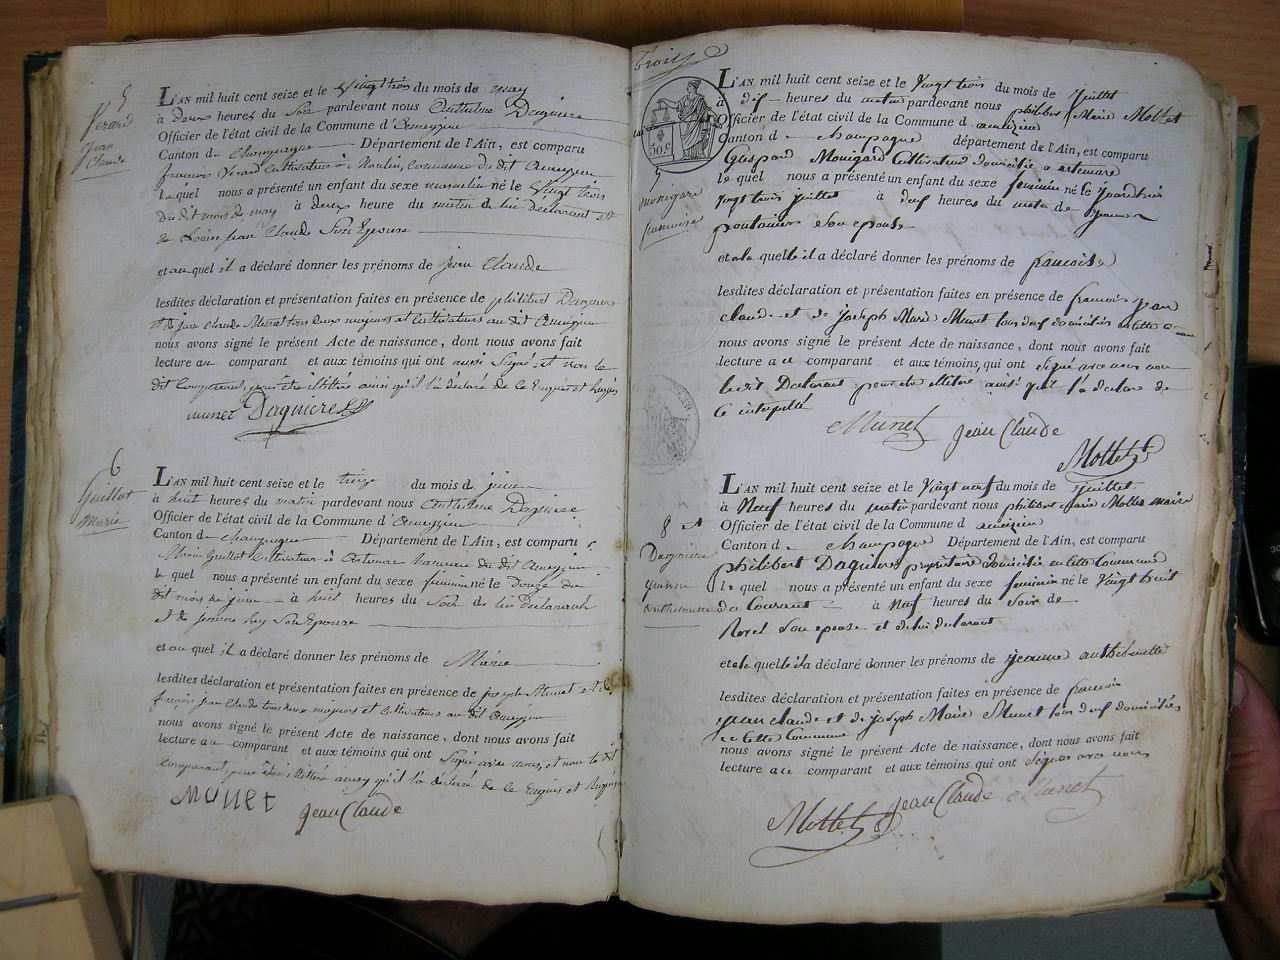 5
Jean
Claude
L'AN mil huit cent seize et le Vingt trois du mois de may
à deux heures du Soir pardevant nous Anthelme Daguiere
Officier de l'état civil de la Commune d'Ameyzieu
Canton de Champagne Département de l'Ain, est comparu
cultivateur à Commune du dit Ameyzieu
lequel nous a présenté un enfant du sexe masculin né le Vingt trois
du dit mois de may à deux heure du matin de lui déclarant et
de Jean Claude Son Epouse
et auquel il a déclaré donner les prénoms de Jean Claude
lesdites déclaration et présentation faites en présence de philibert Daguiere
et de jean claude tous deux majeurs et cultivateurs au dit Ameyzieu
nous avons signé le présent Acte de naissance, dont nous avons fait
lecture au comparant et aux témoins qui ont aussi Signé, et non le
dit Comparant, pour être illitéré ainsi qu'il l'a déclaré de ce Enquis et
munet Daguiere
6
Guillot
Marie
L'AN mil huit cent seize et le treize du mois de juin
à huit heures du matin pardevant nous Anthelme Daguiere
Officier de l'état civil de la Commune d'Ameyzieu
Canton de Champagne Département de l'Ain, est comparu
Guillot Cultivateur à hameau du dit Ameyzieu
lequel nous a présenté un enfant du sexe feminin né le Douze du
dit mois de juin à huit heures du Soir de lui Déclarant
et de Son Epouse
et auquel il a déclaré donner les prénoms de Marie
lesdites déclaration et présentation faites en présence de joseph Munet et de
francois jean claude tous deux majeurs et cultivateurs au dit Ameyzieu
nous avons signé le présent Acte de naissance, dont nous avons fait
lecture au comparant et aux témoins qui ont Signé avec nous, et non le dit
Comparant, pour être illitéré ainsy qu'il l'a déclaré de ce Enquis et
MUNET
jean Claude
Trois
50.c
L'AN mil huit cent seize et le Vingt trois du mois de juillet
à dix heures du matin pardevant nous philibert Marie Mollet
Officier de l'état civil de la Commune d ameizieu
Canton d e champagne département de l'Ain, est comparu
Gaspard Monigard Cultivateur domicilié a
lequel nous a présenté un enfant du sexe feminin né le jourdhui
vingt trois juillet à neuf heures du matin de
son epouse
7
monigard
francoise
et a la quelle il a déclaré donner les prénoms de francoise
lesdites déclaration et présentation faites en présence de francois jean
claude et de joseph Marie Munet tous deux domiciliés en cette Commune
nous avons signé le présent Acte de naissance, dont nous avons fait
lecture au comparant et aux témoins, qui ont signé avec nous non
le dit Declarant pour etre illitéré ainsi qu'il l'a declaré de
ce interpellé
Munet jean Claude
Mollet
8
Daguiere
jeanne
anthelmette
L'AN mil huit cent seize et le Vingt neuf du mois de juillet
à Neuf heures du matin pardevant nous philibert Marie Mollet maire
Officier de l'état civil de la Commune d ameizieu
Canton d e champagne Département de l'Ain, est comparu
philibert Daguiere propriétaire domicilié en cette Commune
lequel nous a présenté un enfant du sexe feminin né le Vingt huit
du Courant à Neuf heures du soir de
son epouse et de lui declarant
et a la quelle il a déclaré donner les prénoms de jeanne anthelmette
lesdites déclaration et présentation faites en présence de francois
jean claude et de joseph Marie Munet tous deux domiciliés
en cette Commune
nous avons signé le présent Acte de naissance, dont nous avons fait
lecture au comparant et aux témoins qui ont signés avec nous
Mollet jean Claude Munet